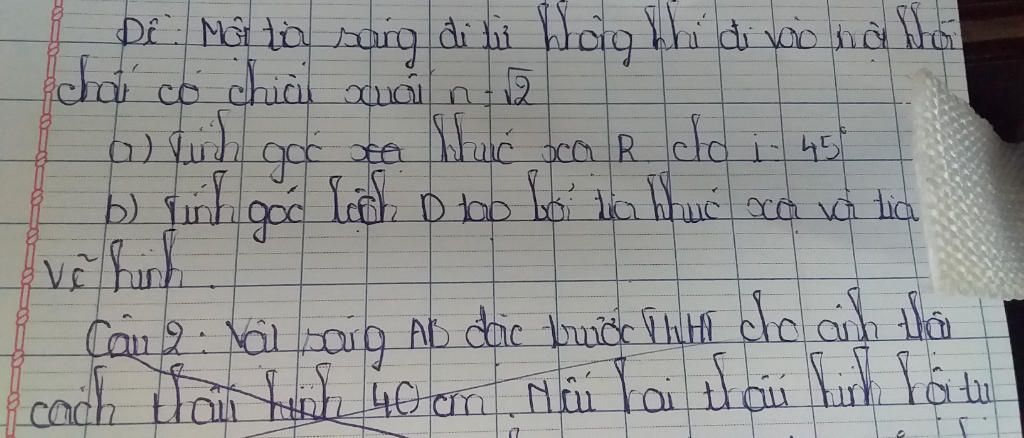 Đề: Một tia sáng đi từ không khí đi vào một khối
chất có chiết suất n = √2
a) Tính góc khúc xạ R cho i = 45°
b) Tính góc lệch D tạo bởi tia khúc xạ và tia
Vẽ hình.
Câu 2: Vật sáng AB đặt trước TKHT cho ảnh thật
cách thấu kính 40 cm. Nếu thấu kính hội tụ